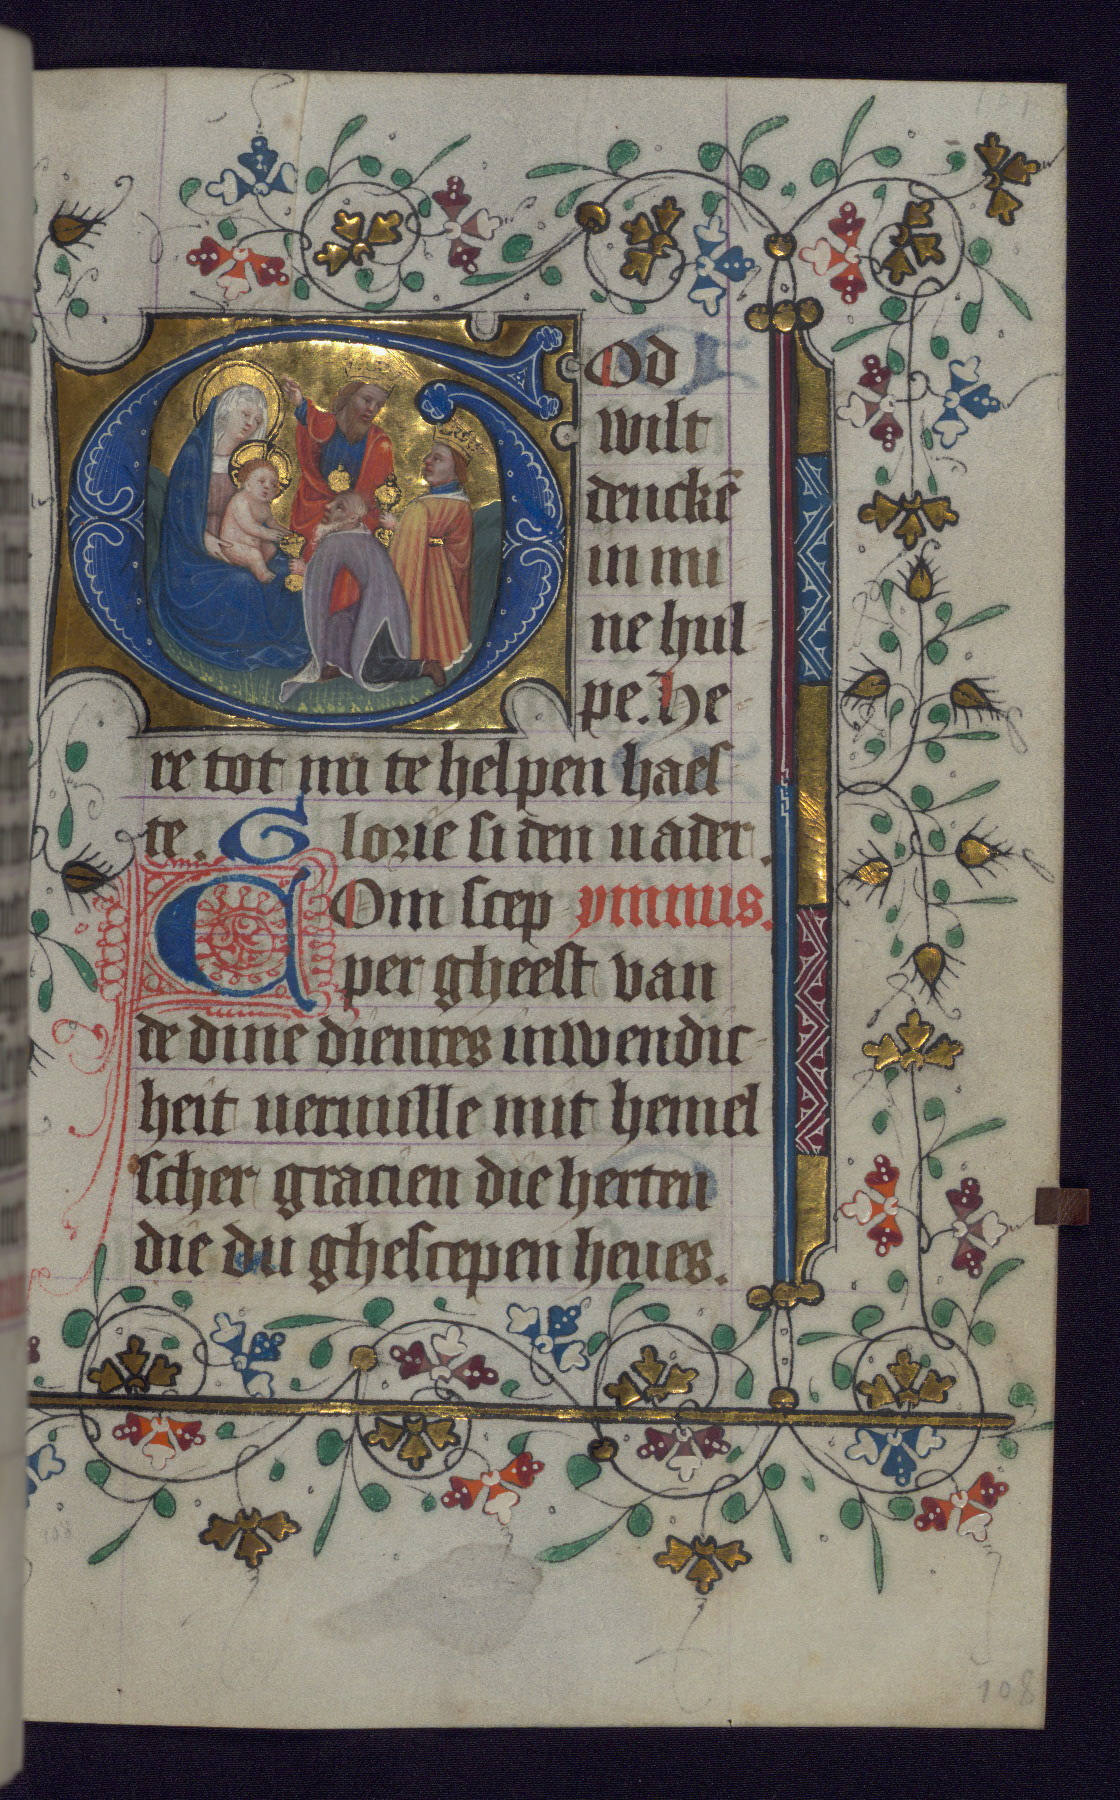 GOd
wilt
denckē
in mi
ne hul-
pe. He-
re tot mi te helpen haes
te. Glorie si den uader.
COm scep ymnus.
per gheest van
de dine dienres inwendic-
heit veruulle mit hemel
scher gracien die herten
die du ghescepen heues.
108